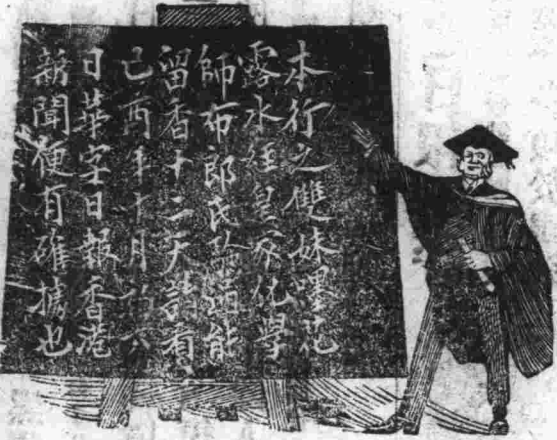 本行之雙妹嘜花
露水經皇家化學
師布郎氏能
留香十二天請看
己酉年十月初六
日華字日報香港
新聞便有確據也